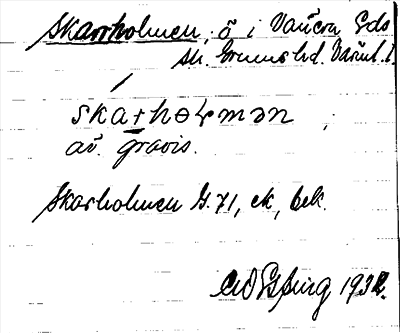 Skarrholmen, ö i Vänern Eds
sn. Grums hd. Värml. l.
skarholmən
av. gravis.
Skarholmen G. 71, ek, bek.
1932.